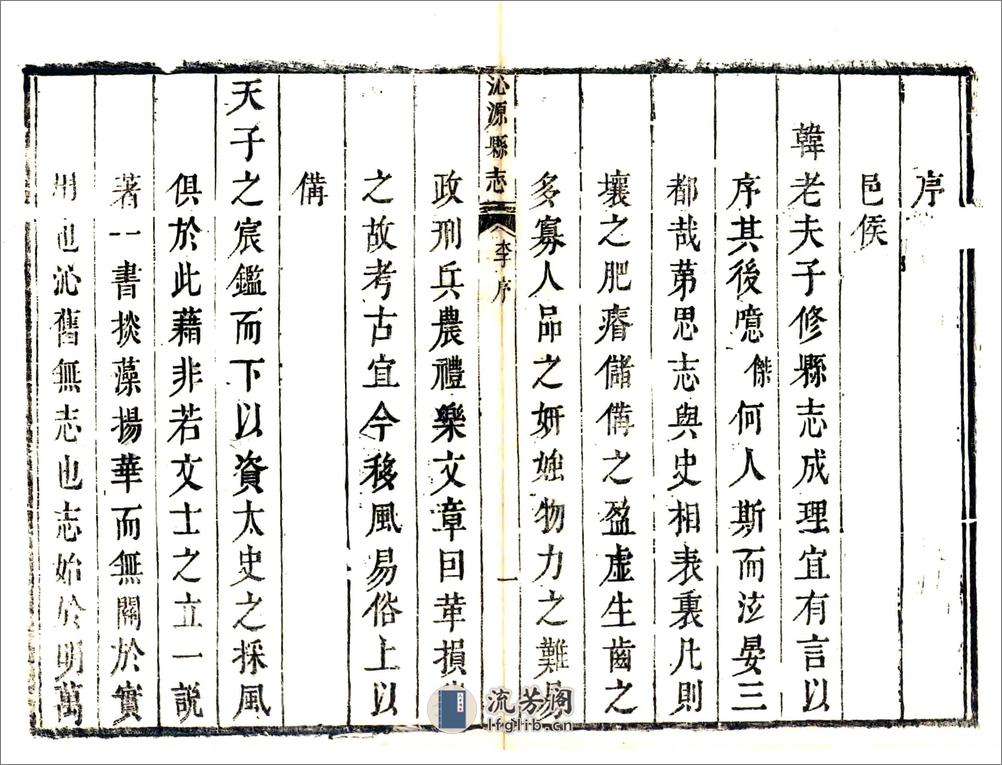 序
邑侯
韓老夫子修縣志成理宜有言以
序其後噫傑何人斯而泫晏三
都哉苐思志與史相表裏凡則
壤之肥瘠儲備之盈虛生齒之
多寡人品之妍媸物力之難易
沁源縣志 李序 一
政刑兵農禮樂文章囙革損
之故考古宜今移風易俗上以
備
天子之宸鑑而下以資太史之採風
俱於此藉非若文士之立一說
著一書掞藻揚華而無關於實
用也沁舊無志也志始於明萬
流芳阁
lfglib.cn